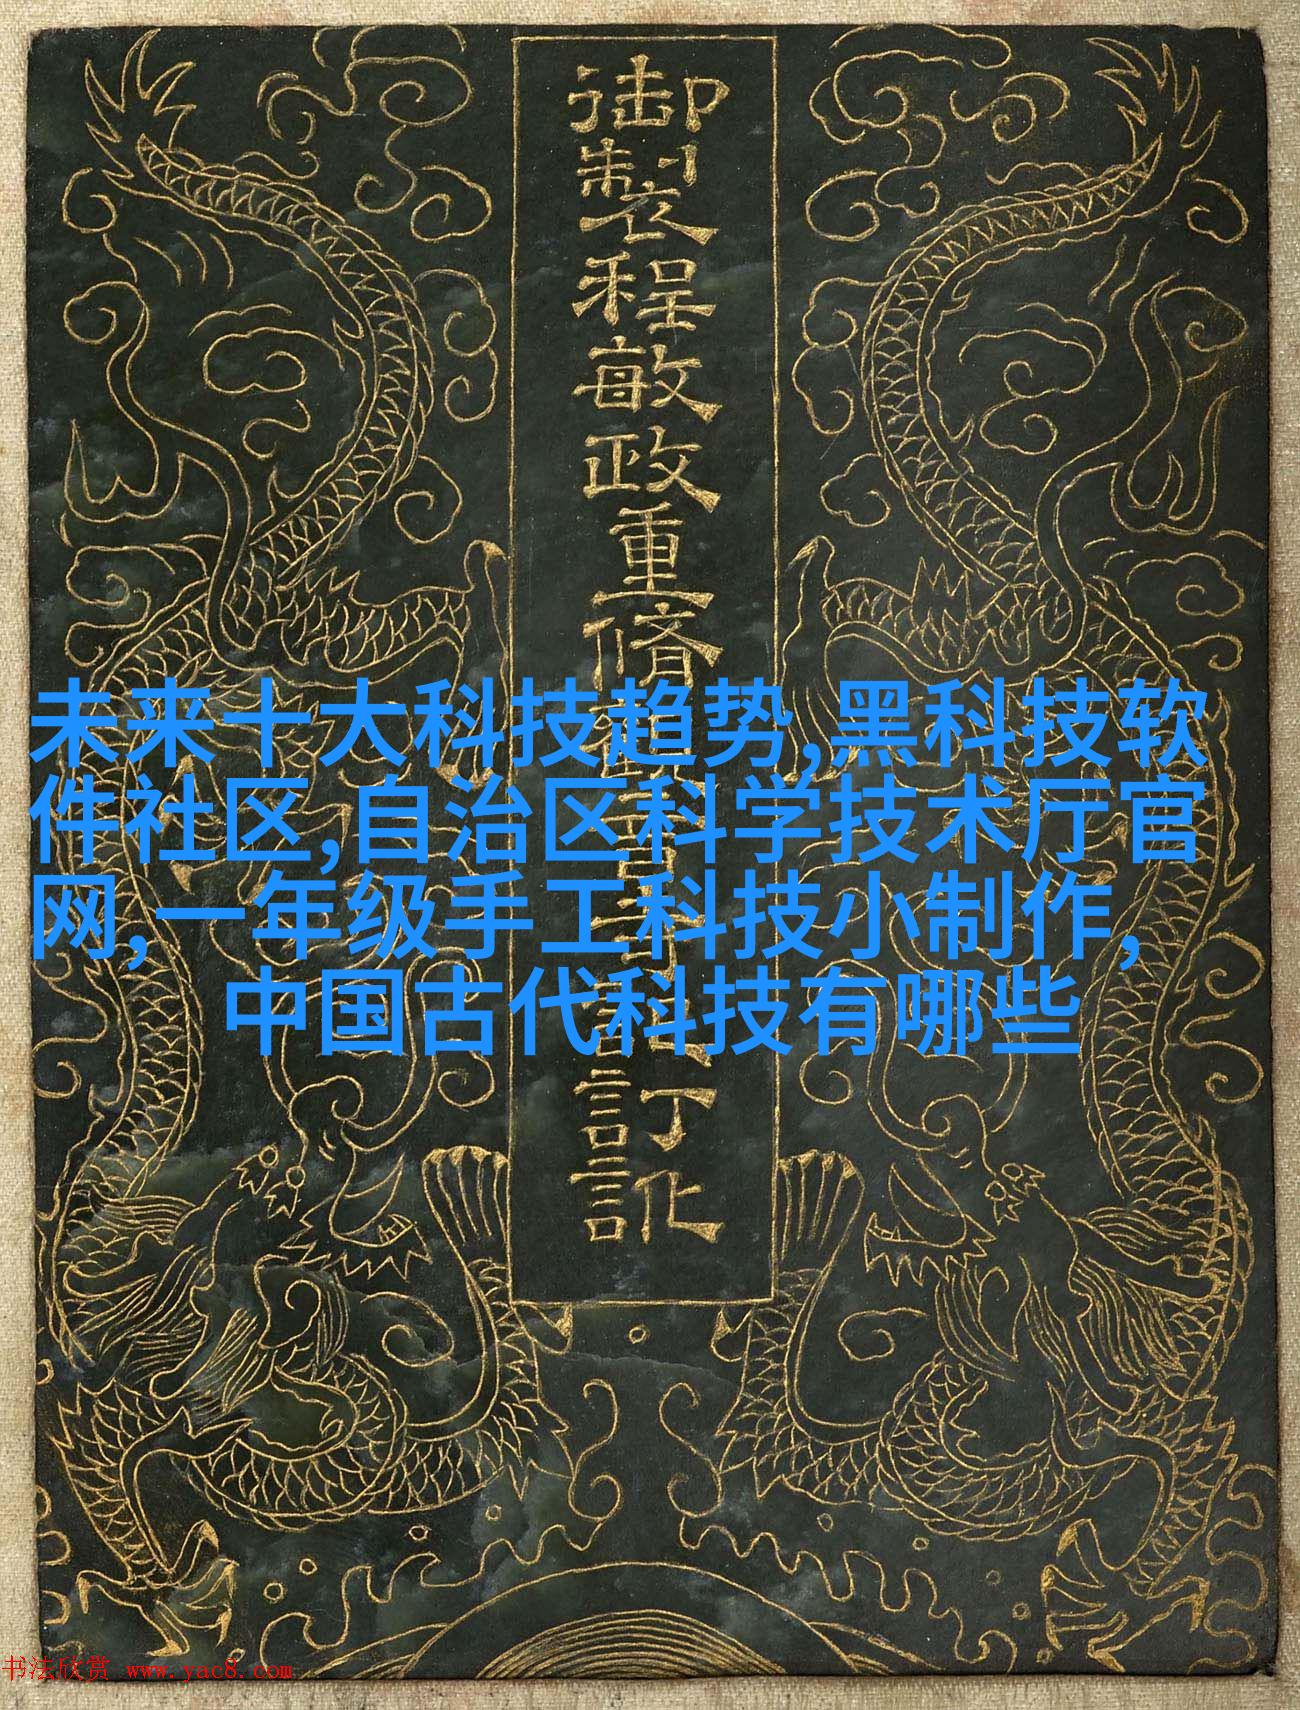 御製程敏政重脩
訂訛
未来十大科技趋势,黑科技软
件社区,自治区科学技术厅官
网,一年级手工科技小制作,
中国古代科技有哪些
书法欣赏 www.yac8.com